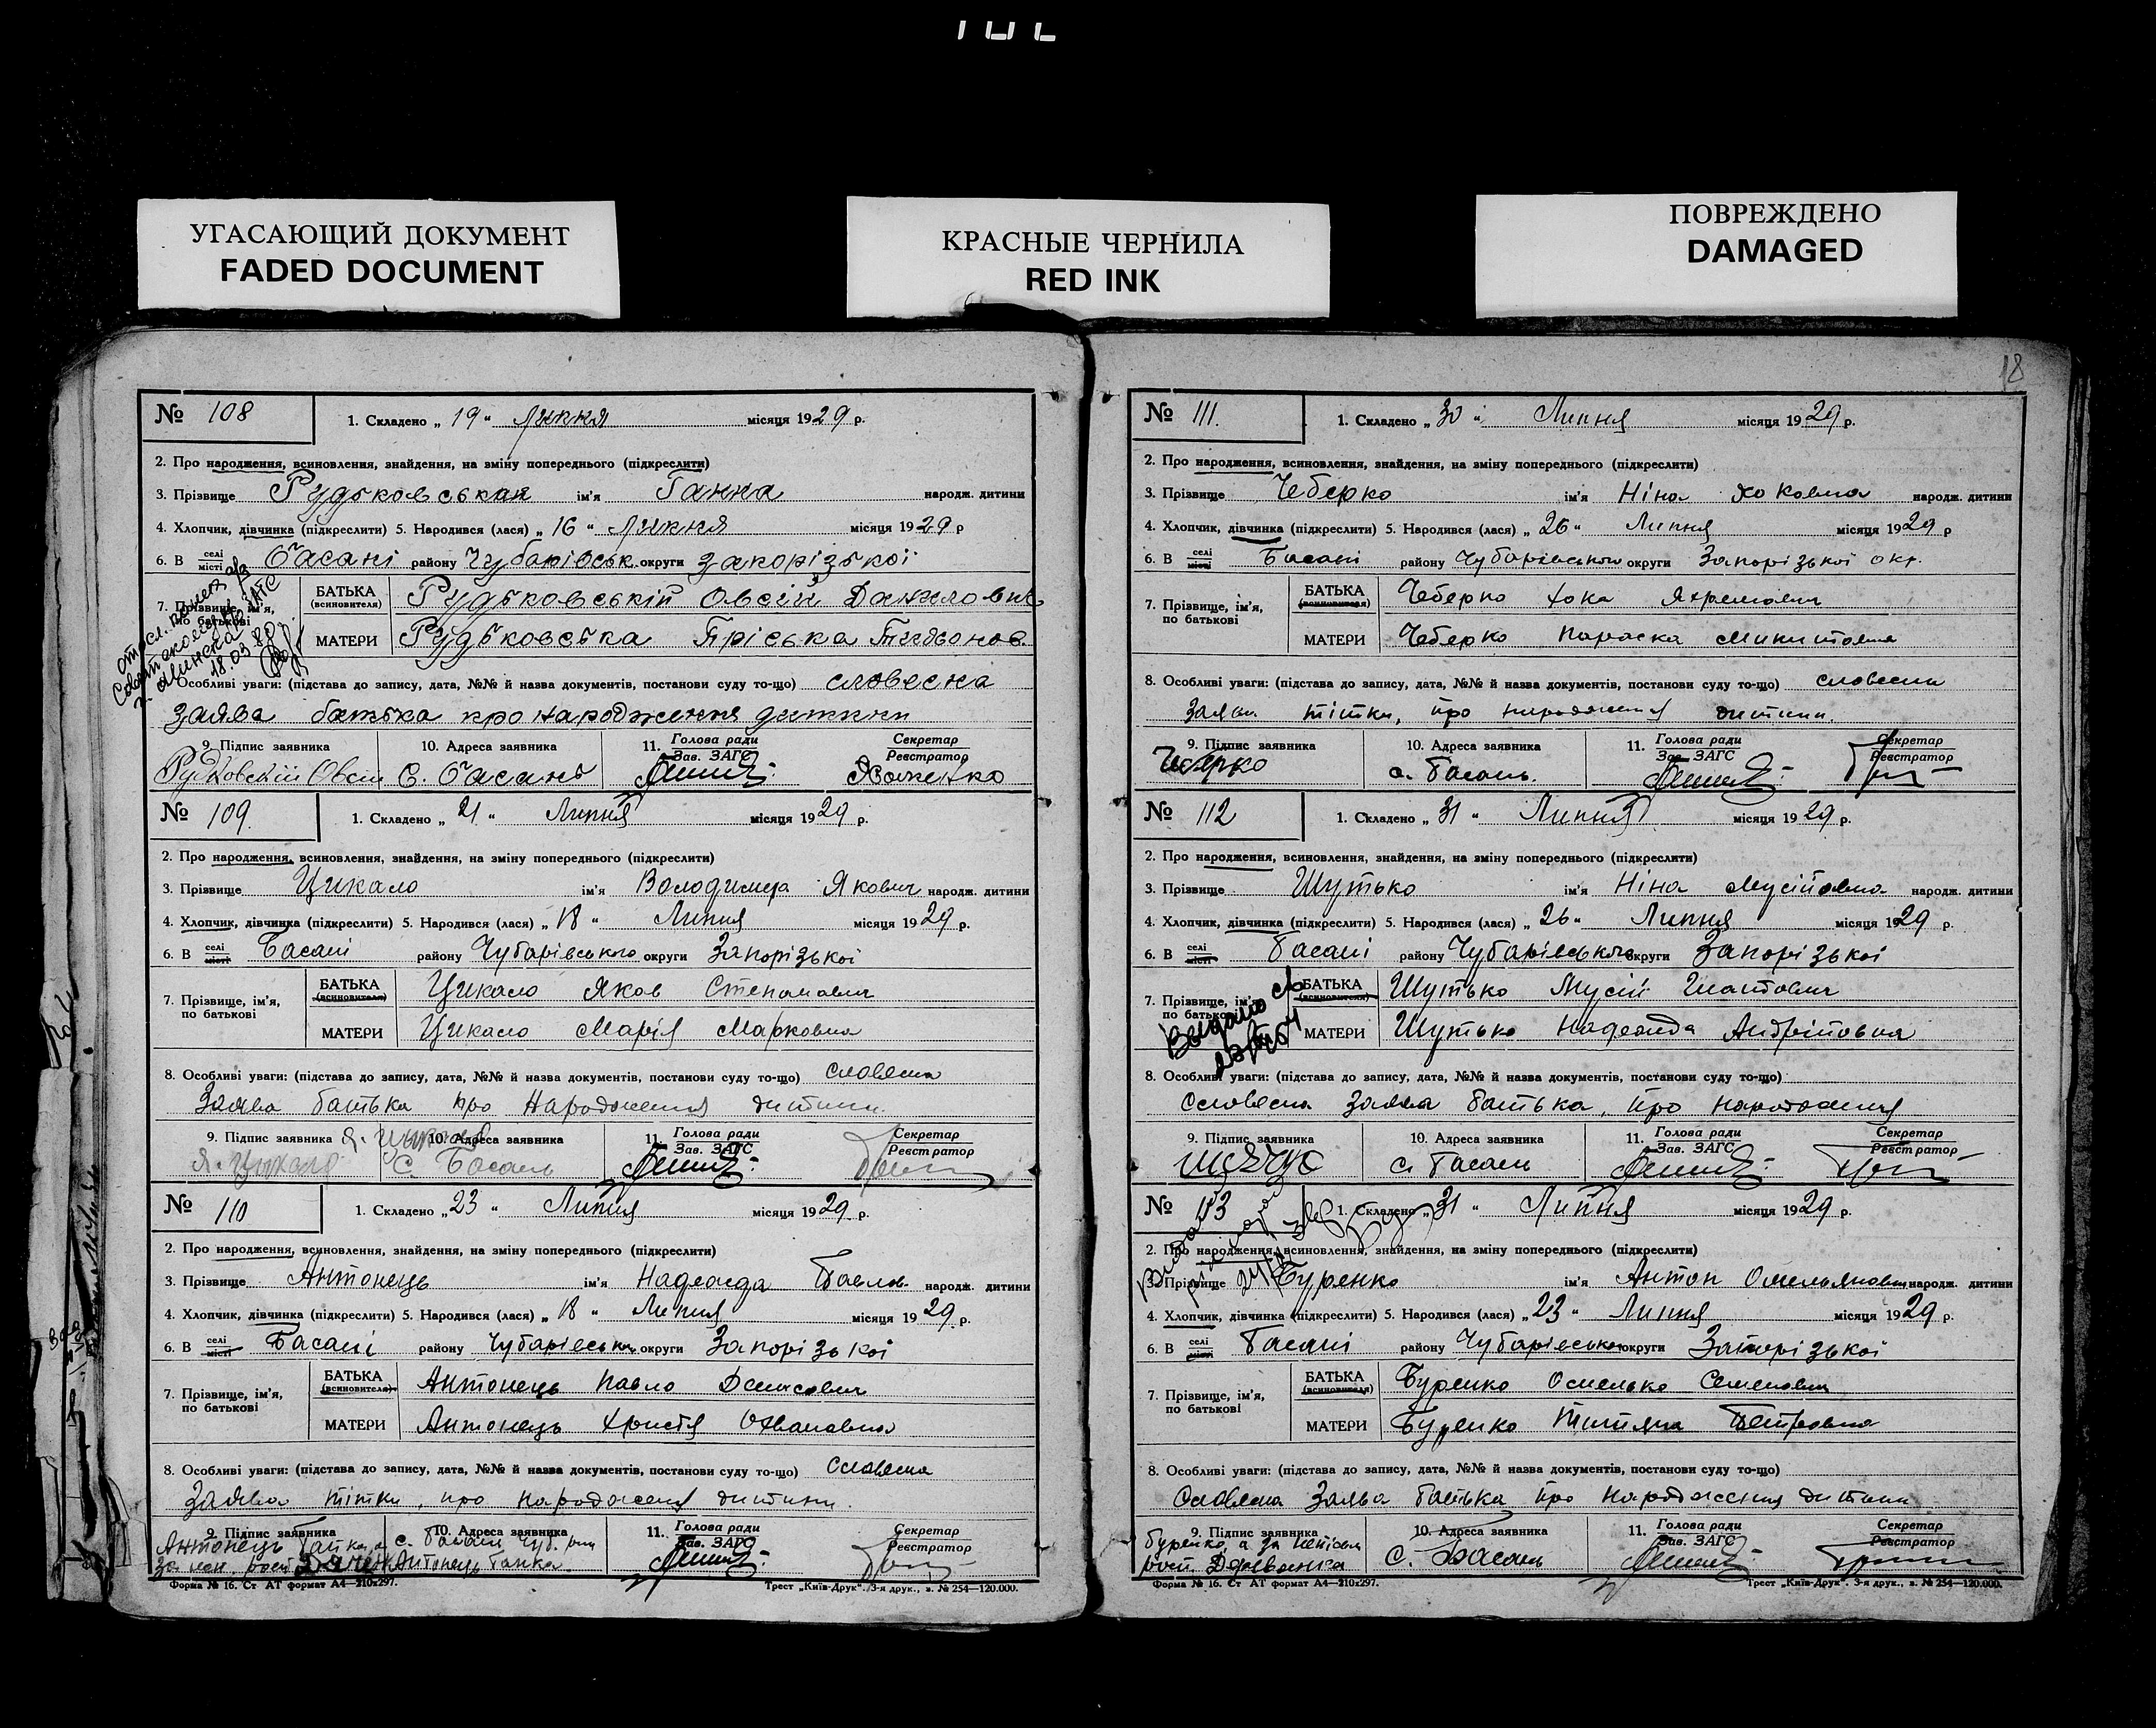 УГАСАЮЩИЙ ДОКУМЕНТ
FADED DOCUMENT
КРАСНЫЕ ЧЕРНИЛА
RED INK
ПОВРЕЖДЕНО
DAMAGED
№ 108 1. Складено „ 19 “ Липня місяця 1929 р.
2. Про народження, всиновлення, знайдення, на зміну попереднього (підкреслити)
3. Прізвище Рудьковськая ім'я Ганна народж. дитини
4. Хлопчик, дівчинка (підкреслити) 5. Народився (лася) „ 16 “ Липня місяця 1929 р
6. В селі місті Басані району Чубарівськ. округи Запорізької
7. Прізвище, ім'я, по батькові
БАТЬКА (всиновителя) Рудьковській Овсій Данилович
МАТЕРИ Рудьковська Пріська
18.03.80
8. Особливі уваги: (підстава до запису, дата, №№ й назва документів, постанови суду то-що) словесна
заява батька про народження дитини
9. Підпис заявника 10. Адреса заявника 11. Голова ради Зав. ЗАГС Секретар Реєстратор
Рудковскій Овсій с. Басань
№ 109. 1. Складено „ 21 “ Липня місяця 1929 р.
2. Про народження, всиновлення, знайдення, на зміну попереднього (підкреслити)
3. Прізвище Цикало ім'я Володимир Якович народж. дитини
4. Хлопчик, дівчинка (підкреслити) 5. Народився (лася) „ 18 “ Липня місяця 1929 р.
6. В селі місті Басані району Чубарівського округи Запорізької
7. Прізвище, ім'я, по батькові
БАТЬКА (всиновителя) Цикало Яков Степанович
МАТЕРИ Цикало Марія Марковна
8. Особливі уваги: (підстава до запису, дата, №№ й назва документів, постанови суду то-що) словесна
Заява батька про народження дитини.
9. Підпис заявника 10. Адреса заявника 11. Голова ради Зав. ЗАГС Секретар Реєстратор
Я. Цыкало с. Басань
№ 110 1. Складено „ 23 “ Липня місяця 1929 р.
2. Про народження, всиновлення, знайдення, на зміну попереднього (підкреслити)
3. Прізвище Антонець ім'я Надежда Павлов. народж. дитини
4. Хлопчик, дівчинка (підкреслити) 5. Народився (лася) „ 18 “ Липня місяця 1929 р.
6. В селі місті Басані району Чубарівськ. округи Запорізької
7. Прізвище, ім'я, по батькові
БАТЬКА (всиновителя) Антонець Павло Денисович
МАТЕРИ Антонець Христя
8. Особливі уваги: (підстава до запису, дата, №№ й назва документів, постанови суду то-що) Словесна
Заява тітки, про народження дитини.
9. Підпис заявника 10. Адреса заявника 11. Голова ради Зав. ЗАГС Секретар Реєстратор
Антонець с. Басань
Форма № 16. Ст АТ формат А4—210x297. Трест „Київ-Друк“. 3-я друк., з. № 254—120.000.
18
№ 111. 1. Складено „ 30 “ Липня місяця 1929 р.
2. Про народження, всиновлення, знайдення, на зміну попереднього (підкреслити)
3. Прізвище Чеберко ім'я Ніна народж. дитини
4. Хлопчик, дівчинка (підкреслити) 5. Народився (лася) „ 26 “ Липня місяця 1929 р
6. В селі місті Басані району Чубарівського округи Запорізької окр.
7. Прізвище, ім'я, по батькові
БАТЬКА (всиновителя) Чеберко Хока
МАТЕРИ Чеберко Параска
8. Особливі уваги: (підстава до запису, дата, №№ й назва документів, постанови суду то-що) словесна
Заява тітки, про народження дитини.
9. Підпис заявника 10. Адреса заявника 11. Голова ради Зав. ЗАГС Секретар Реєстратор
с. Басань.
№ 112 1. Складено „ 31 “ Липня місяця 1929 р.
2. Про народження, всиновлення, знайдення, на зміну попереднього (підкреслити)
3. Прізвище Шутько ім'я Ніна Мусійовна народж. дитини
4. Хлопчик, дівчинка (підкреслити) 5. Народився (лася) „ 26 “ Липня місяця 1929 р.
6. В селі місті Басані району Чубарівського округи Запорізької
7. Прізвище, ім'я, по батькові
БАТЬКА (всиновителя) Шутько Мусій
МАТЕРИ Шутько Надежда Андрійовна
8. Особливі уваги: (підстава до запису, дата, №№ й назва документів, постанови суду то-що)
Словесна заява батька, про народження
9. Підпис заявника 10. Адреса заявника 11. Голова ради Зав. ЗАГС Секретар Реєстратор
с. Басань
№ 113 1. Складено „ 31 “ Липня місяця 1929 р.
2. Про народження, всиновлення, знайдення, на зміну попереднього (підкреслити)
3. Прізвище Буренко ім'я Антон Омельянович народж. дитини
4. Хлопчик, дівчинка (підкреслити) 5. Народився (лася) „ 23 “ Липня місяця 1929 р.
6. В селі місті Басані району Чубарівського округи Запорізької
7. Прізвище, ім'я, по батькові
БАТЬКА (всиновителя) Буренко Омелько Семенович
МАТЕРИ Буренко Титяна Петровна
8. Особливі уваги: (підстава до запису, дата, №№ й назва документів, постанови суду то-що)
Словесна Заява батька про народження дитини
9. Підпис заявника 10. Адреса заявника 11. Голова ради Зав. ЗАГС Секретар Реєстратор
Буренко, а за с. Басань
Форма № 16. Ст АТ формат А4—210x297. Трест „Київ-Друк“. 3-я друк., з. № 254—120.000.